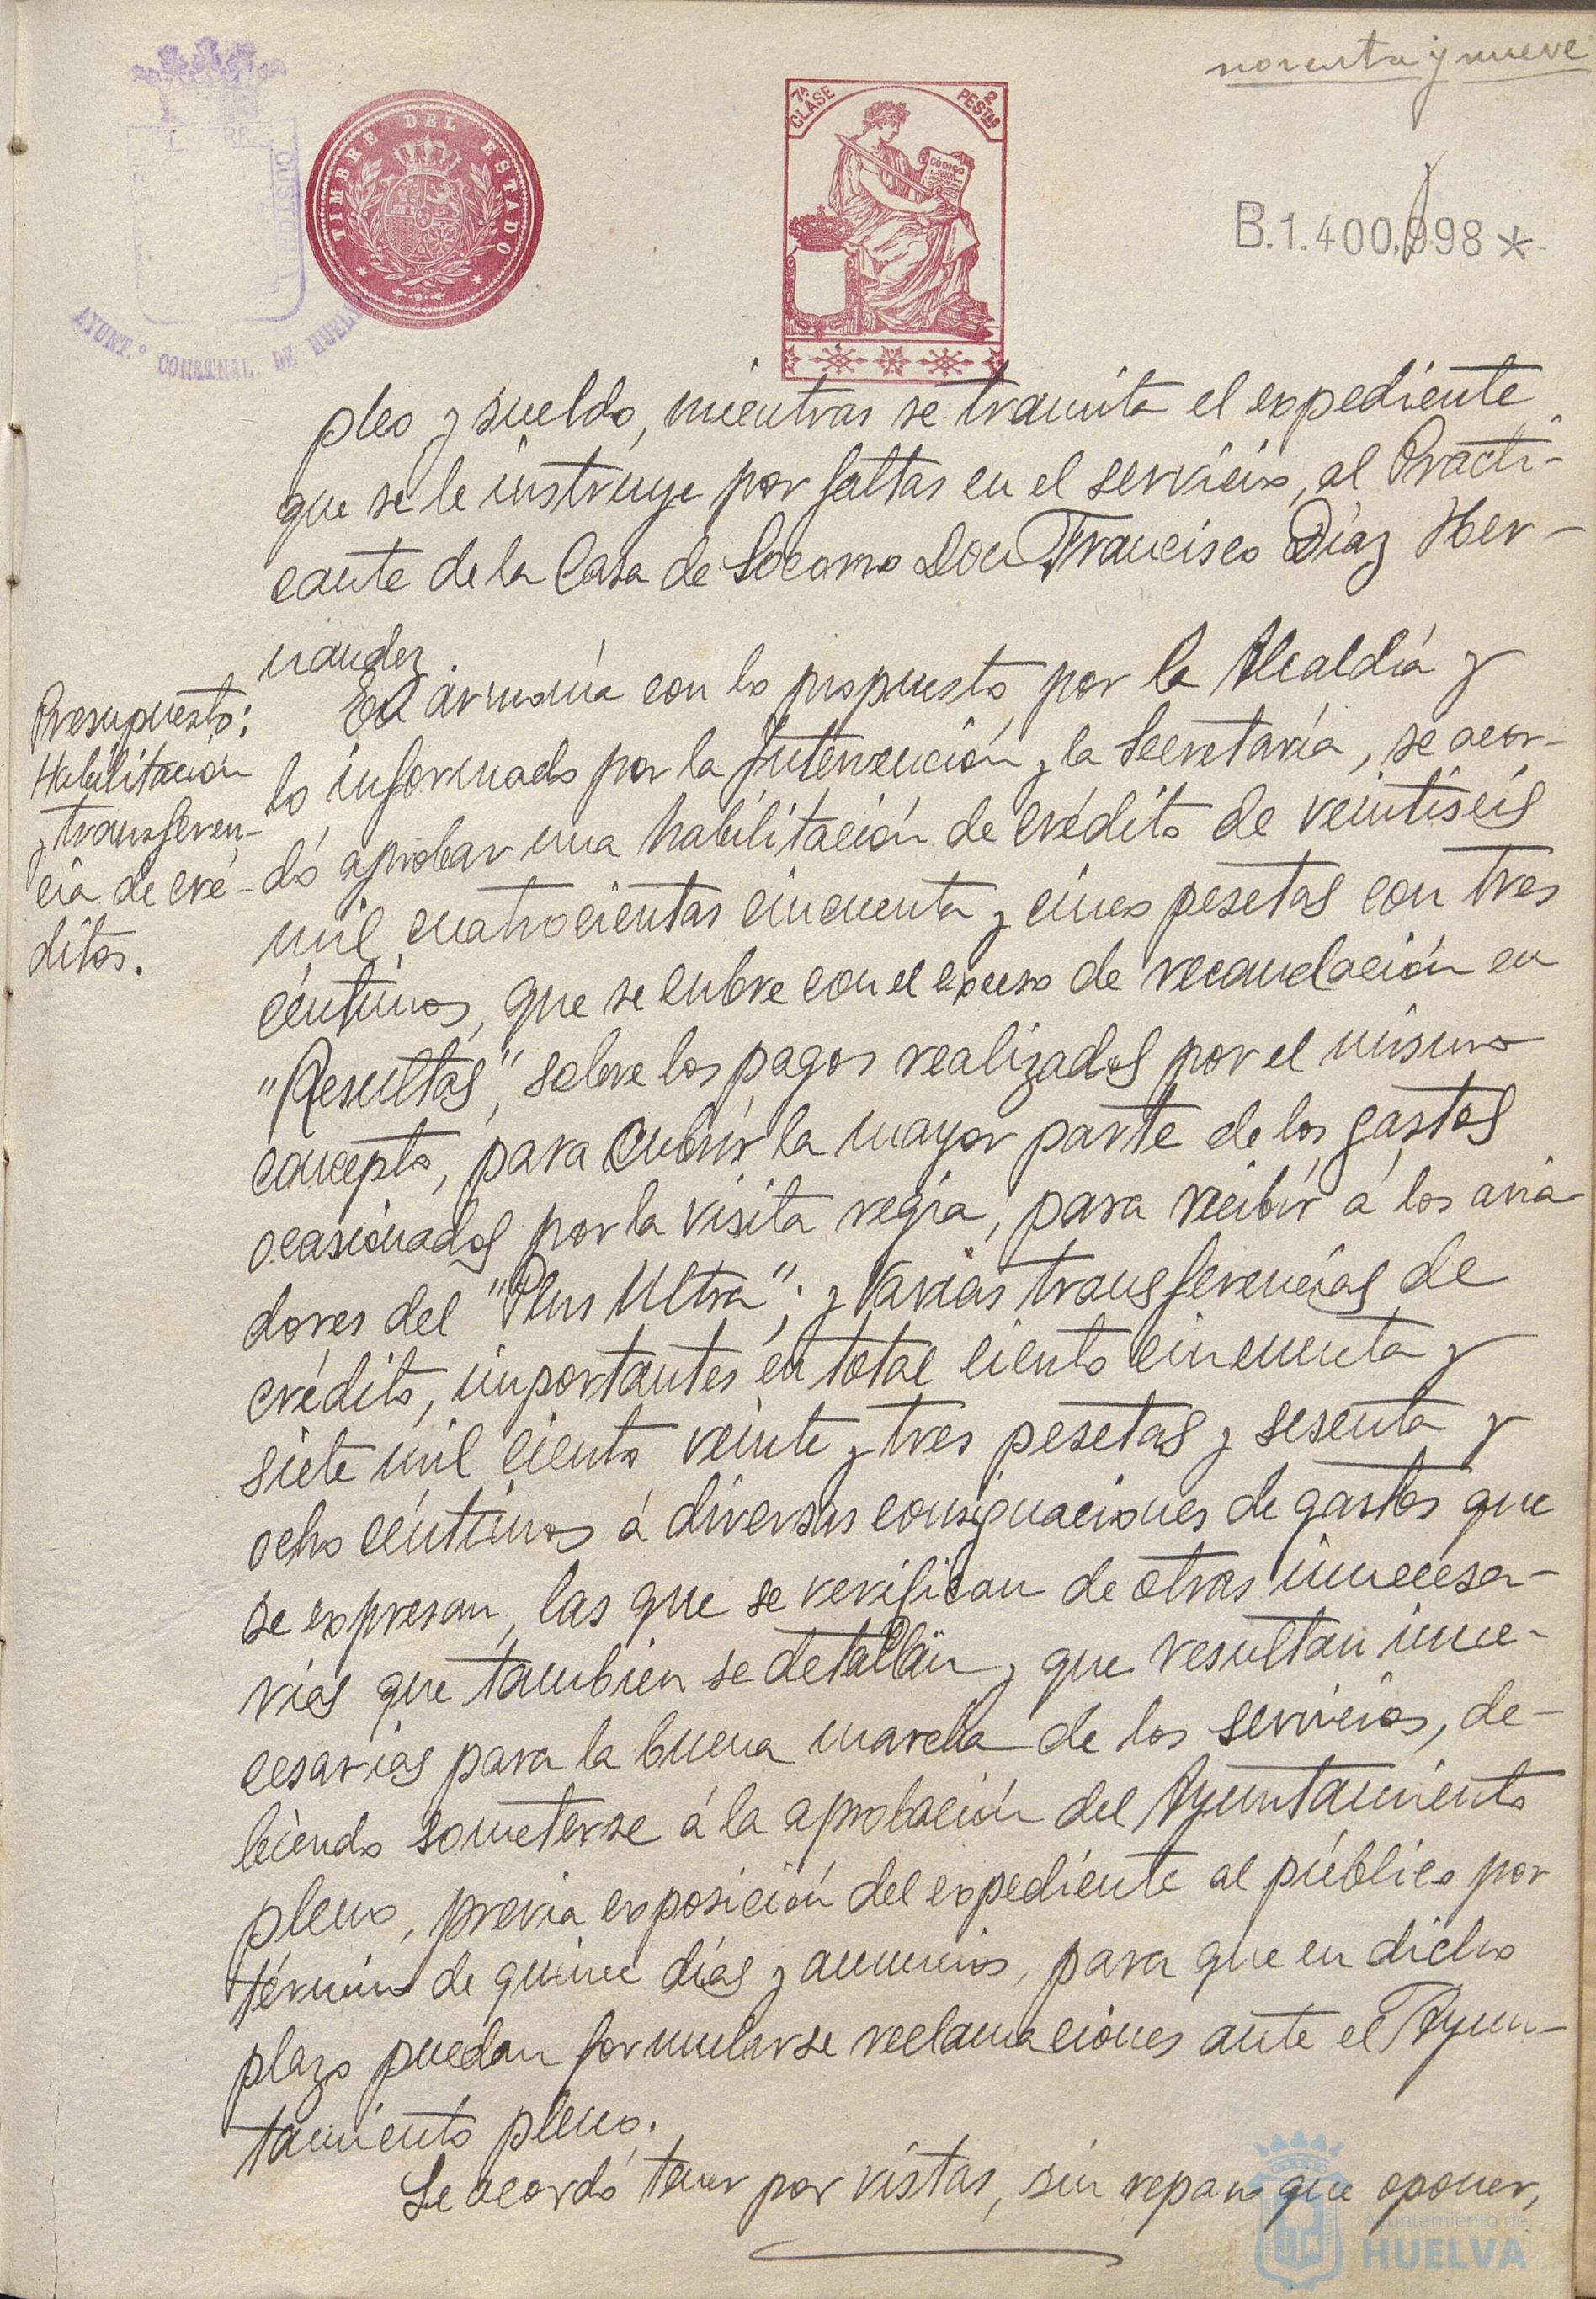 noventa y nueve
TIMBRE DEL ESTADO
7ª CLASE
2 PESTAS
CÓDIGO
B.1.400.998*
AYUNT.º CONSTNAL DE HUELV
pleo y sueldo, mientras se tramita el expediente
que se le instruye por faltas en el servicio, al Practi-
cante de la Casa de Socorro Don Francisco Díaz Her-
nandez.
Presupuesto:
Habilitación
y transferen-
cia de cré-
ditos.
En armonía con lo propuesto por la Alcaldía y
lo informado por la Intervención y la Secretaría, se acor-
dó aprobar una habilitación de crédito de veintiseis
mil cuatrocientas cincuenta y cinco pesetas con tres
céntimos, que se cubre con el exceso de recaudación en
"Resultas", sobre los pagos realizados por el mismo
concepto, para cubrir la mayor parte de los gastos
ocasionados por la visita regia, para recibir á los avia-
dores del "Plus Ultra"; y varias transferencias de
crédito, importantes en total ciento cincuenta y
siete mil ciento veinte y tres pesetas y sesenta y
ocho céntimos á diversas consignaciones de gastos que
se expresan, las que se verifican de otras innecesa-
rias que tambien se detallan y que resultan inne-
cesarias para la buena marcha de los servicios, de-
biendo someterse á la aprobación del Ayuntamiento
pleno, previa exposición del expediente al público por
término de quince días y anuncios, para que en dicho
plazo puedan formularse reclamaciones ante el Ayun-
tamiento pleno.
Se acordó tener por vistas, sin reparo que oponer,
Ayuntamiento de
HUELVA